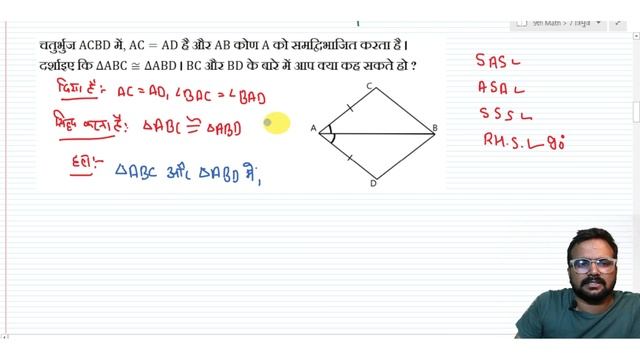 9th Math > 7 त्रिभुज
चतुर्भुज ACBD में, AC = AD है और AB कोण A को समद्विभाजित करता है।
दर्शाइए कि ΔABC ≅ ΔABD। BC और BD के बारे में आप क्या कह सकते हो ?
दिया है:- AC = AD, ∠BAC = ∠BAD
सिद्ध करना है:- ΔABC ≅ ΔABD
हल:-
ΔABC और ΔABD में,
C
A
B
D
SAS
ASA
SSS
R.H.S. 90°